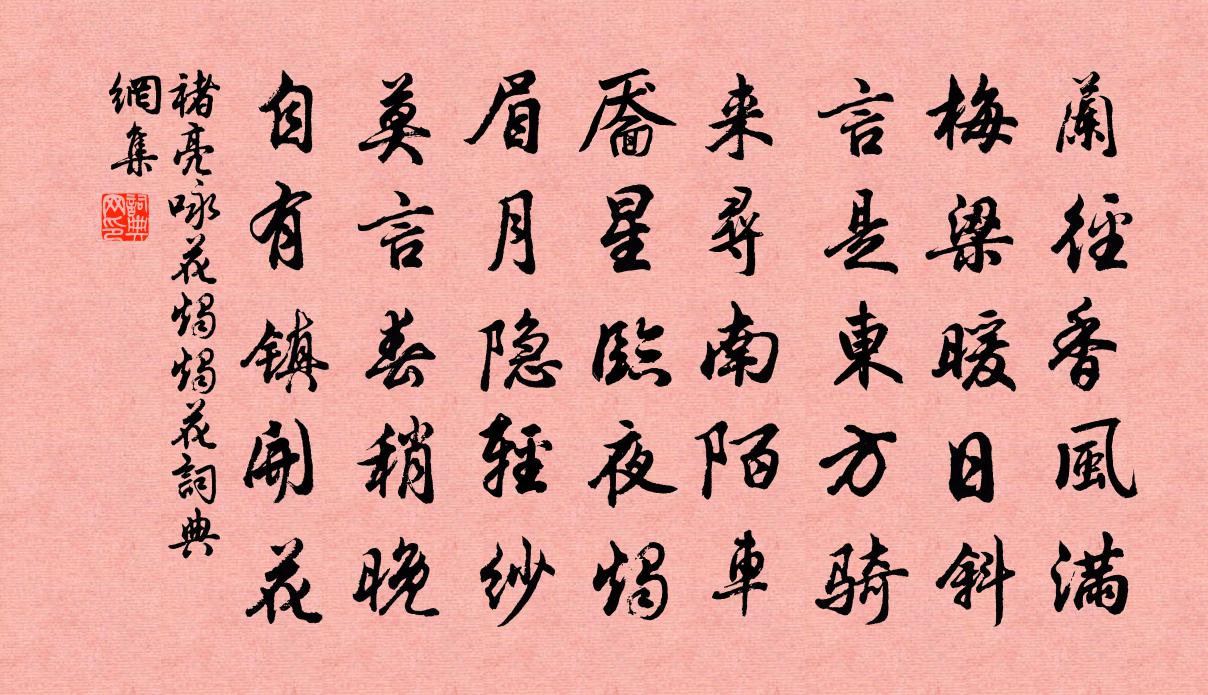 蘭徑香風滿
梅梁暖日斜
言是東方騎
来尋南陌車
靨星臨夜燭
眉月隐輕紗
莫言春稍晚
自有鎮開花
褚亮咏花燭燭花詞典
網集
詞典
网印